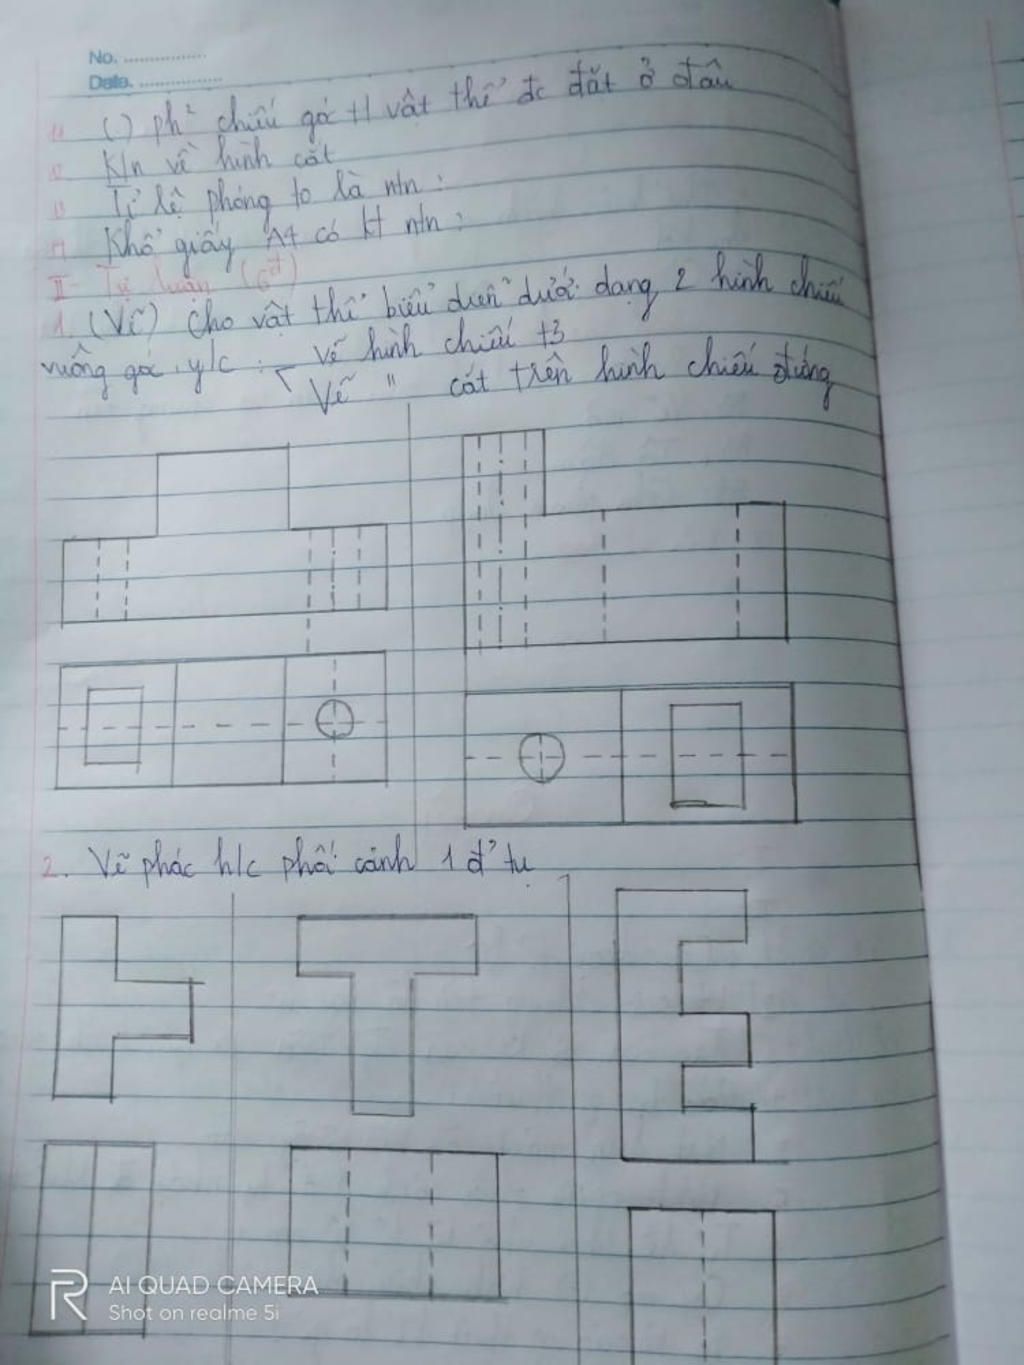 No. ................
Date. ................
11 () ph² chiếu góc t1 vật thể đc đặt ở đâu
12 K/n về hình cắt
13 Tỉ lệ phóng to là ntn :
14 Khổ giấy A4 có kt ntn :
II- Tự luận (6đ)
1. (Vẽ) Cho vật thể biểu diễn dưới dạng 2 hình chiếu
vuông góc . y/c : Vẽ hình chiếu t3
Vẽ " cắt trên hình chiếu đứng
2. Vẽ phác h/c phối cảnh 1 đ' tụ
R AI QUAD CAMERA
Shot on realme 5i